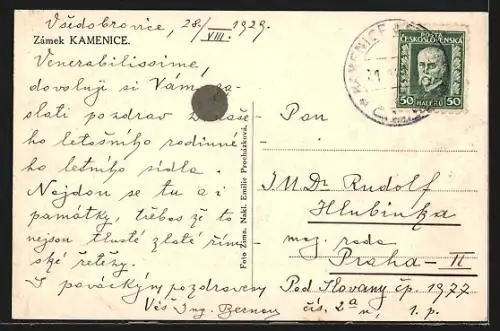 Všedobrovice, 28/VIII. 1929.
Zámek KAMENICE.
Venerabilissime,
dovoluji si Vám za-
slati pozdrav z naše-
ho letošního rodinné-
ho letního sídla.
Najdou se tu a i
památky, třebas že to
nejsou tlusté zlaté řím-
ské řetězy.
S pováckým pozdravem
Váš Ing.
Foto Zíma. Nákl. Emilie Procházková.
POŠTA
ČESKOSLOVENSKÁ
50 HALÉŘŮ 50
KAMENICE
Pan
JUDr Rudolf
Hlubinka
mag. rada
Praha-II
Pod Slovany čp. 1977
čís. 2a, 1. p.